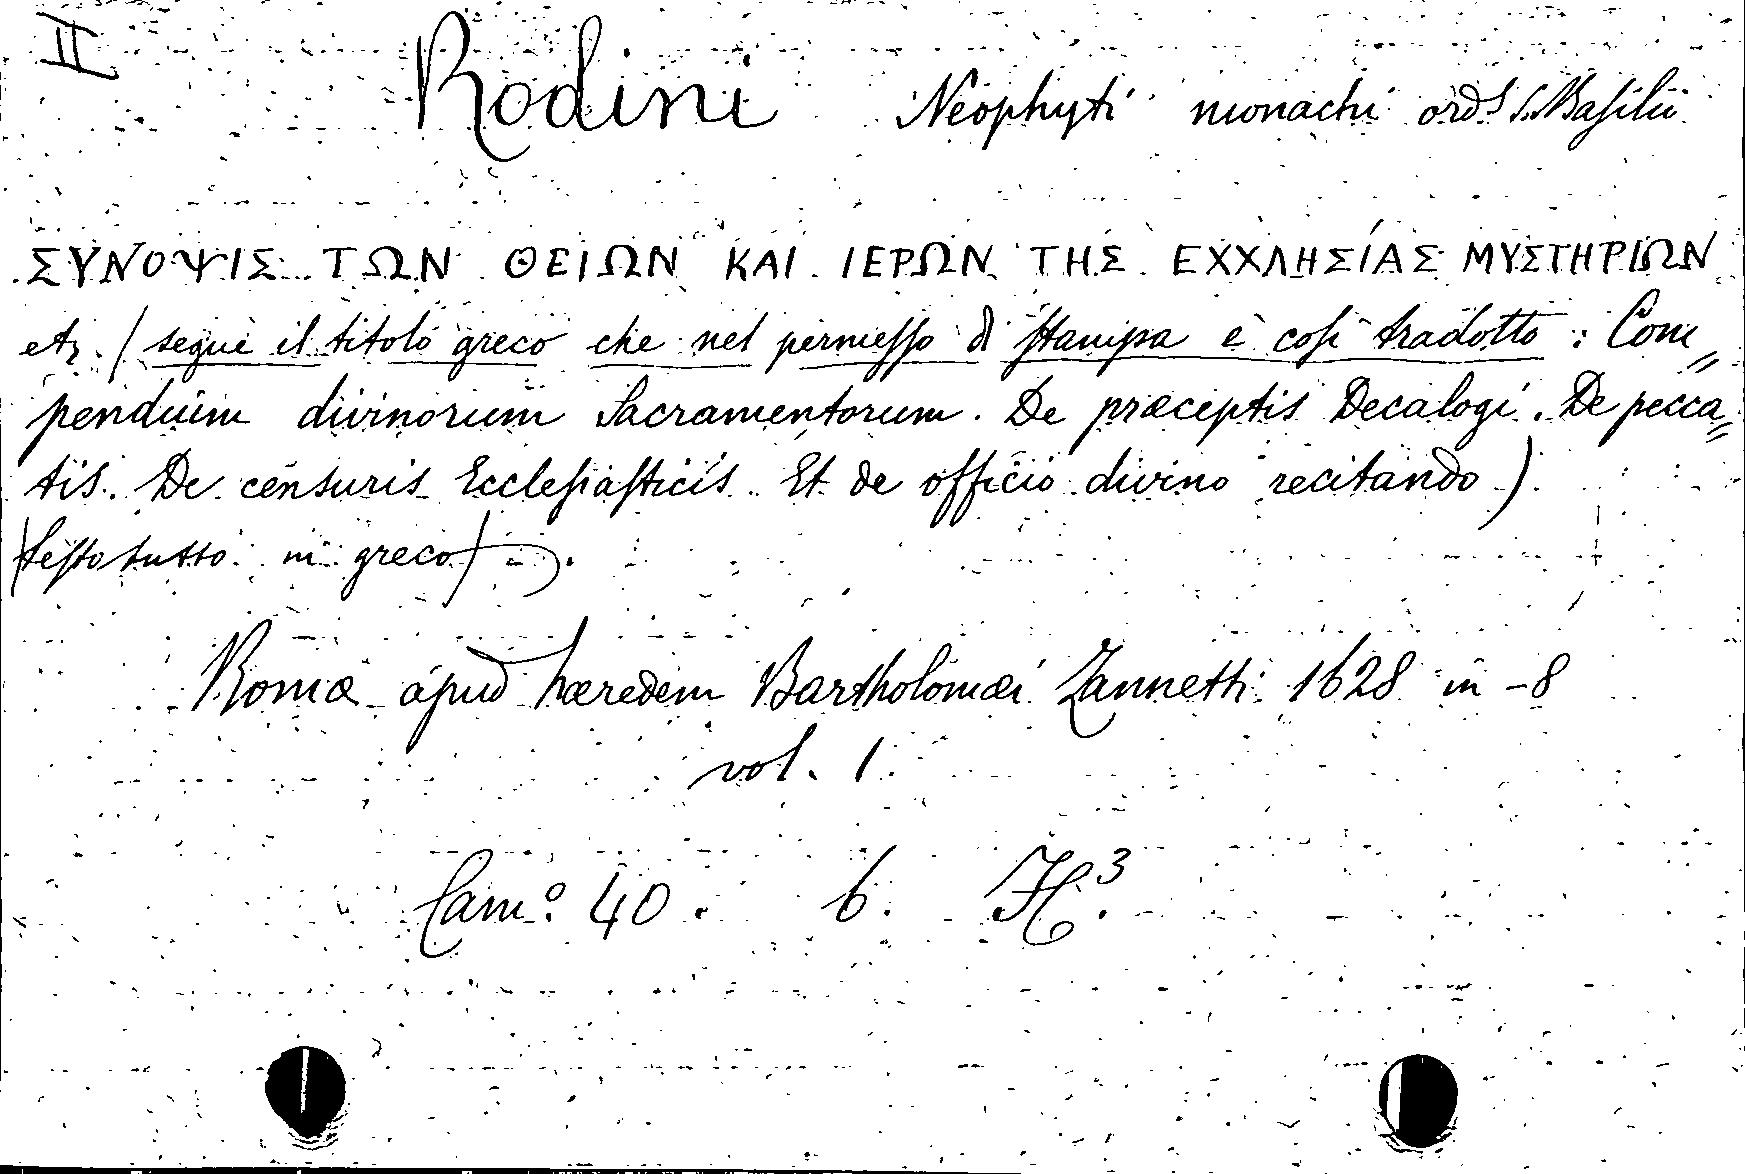 II
Rodini Neophyti monachi ord. S. Basilii
ΣΥΝΟΨΙΣ ΤΩΝ ΘΕΙΩΝ ΚΑΙ ΙΕΡΩΝ ΤΗΣ ΕΧΧΛΗΣΊΑΣ ΜΥΣΤΗΡΙΩΝ
etc. (segue il titolo greco che nel permesso di stampa è così tradotto : Com„
pendium divinorum Sacramentorum. De præceptis Decalogi. De pecca„
tis. De censuris Ecclesiasticis. Et de officio divino recitando).
(testo tutto in greco).
Romæ apud hæredem Bartholomæi Zannetti 1628 in-8
vol. 1.
Cam.º 40. b. H.³